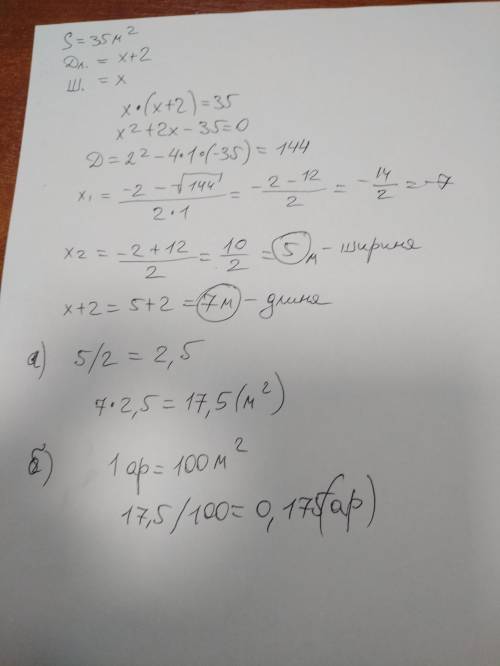 S = 35 м²
Дл. = x+2
Ш. = x
x•(x+2) = 35
x² + 2x - 35 = 0
Д = 2² - 4•1•(-35) = 144
x₁ = (-2 - √144)/(2•1) = (-2-12)/2 = -14/2 = -7
x₂ = (-2+12)/2 = 10/2 = 5 м - ширина
x+2 = 5+2 = 7м - длина
а) 5/2 = 2,5
7•2,5 = 17,5 (м²)
б) 1 ар = 100 м²
17,5/100 = 0,175 (ар)